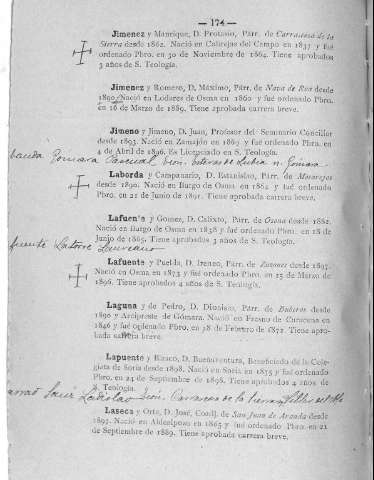 — 174 —
Jimenez y Manrique, D. Protasio, Párr. de Carrascosa de la
Sierra desde 1862. Nació en Calatojas del Campo en 1837 y fué
ordenado Pbro. en 30 de Noviembre de 1864. Tiene aprobados
3 años de S. Teología.
Jimenez y Romero, D. Máximo, Párr. de Nava de Roa desde
1890. Nació en Lodares de Osma en 1860 y fué ordenado Pbro.
en 16 de Marzo de 1889. Tiene aprobada carrera breve.
Jimeno y Jimeno, D. Juan, Profesor del Seminario Conciliar
desde 1893. Nació en Zamajón en 1869 y fué ordenado Pbro. en
4 de Abril de 1896. Es Licenciado en S. Teología.
Gómara Pascual,
Laborda y Campanario, D. Estanislao, Párr. de Matarejos
desde 1890. Nació en Burgo de Osma en 1864 y fué ordenado
Pbro. en 21 de Junio de 1891. Tiene aprobada carrera breve.
Lafuente y Gomez, D. Calixto, Párr. de Osona desde 1882.
Nació en Burgo de Osma en 1838 y fué ordenado Pbro. en 18 de
Junio de 1865. Tiene aprobados 3 años de S. Teología.
Latorre
Lafuente y Puelda, D. Ireneo, Párr. de Zayones desde 1897.
Nació en Osma en 1873 y fué ordenado Pbro. en 15 de Marzo de
1896. Tiene aprobados 4 años de S. Teología.
Laguna y de Pedro, D. Dionisio, Párr. de Buberos desde
1890 y Arcipreste de Gómara. Nació en Fresno de Caracena en
1846 y fué ordenado Pbro. en 28 de Febrero de 1872. Tiene apro-
bada carrera breve.
Lapuente y Blasco, D. Buenaventura, Beneficiado de la Cole-
giata de Soria desde 1898. Nació en Soria en 1875 y fué ordenado
Pbro. en 24 de Septiembre de 1898. Tiene aprobados 4 años de
S. Teología.
Ladislao Carrascosa de la Sierra
Laseca y Orta, D. José, Coadj. de San Juan de Aranda desde
1897. Nació en Aldealpozo en 1865 y fué ordenado Pbro. en 21
de Septiembre de 1889. Tiene aprobada carrera breve.